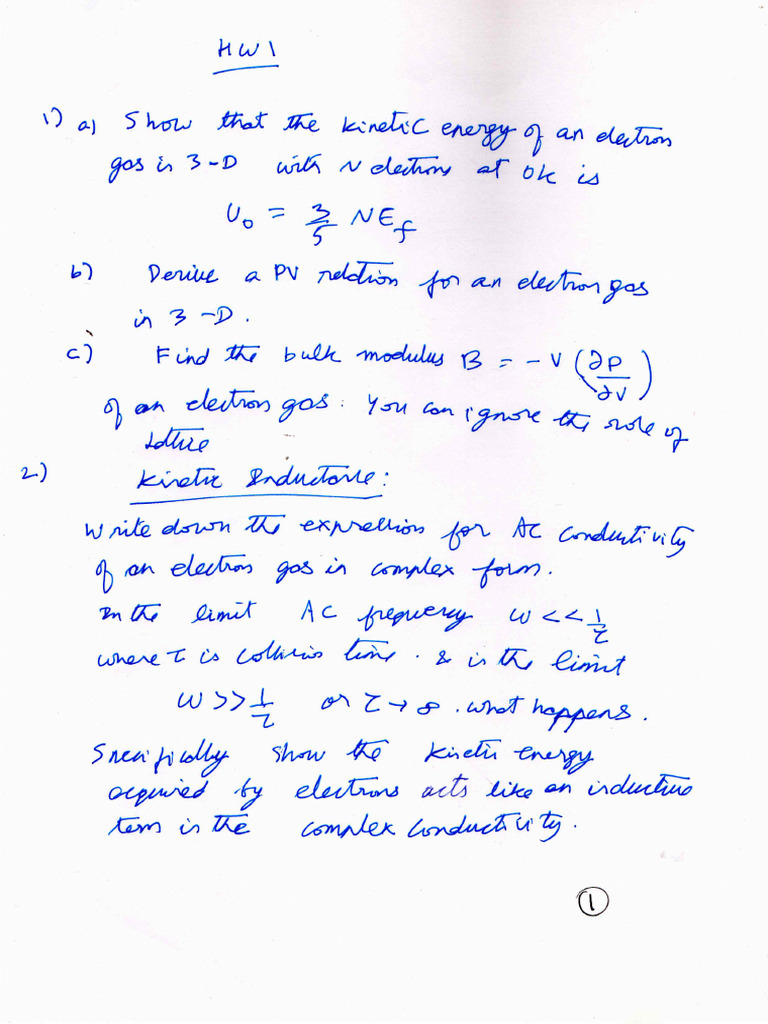 HW1
1) a) Show that the kinetic energy of an electron
gas in 3-D with N electrons at 0K is
U₀ = 3/5 NE_f
b) Derive a PV relation for an electron gas
in 3-D.
c) Find the bulk modulus B = -V (∂P/∂V)
of an electron gas. You can ignore the role of
lattice
2) Kinetic Inductance:
Write down the expression for AC conductivity
of an electron gas in complex form.
In the limit AC frequency ω << 1/τ
where τ is collision time. & in the limit
ω >> 1/τ or τ → ∞. what happens.
Specifically show the kinetic energy
acquired by electrons acts like an inductive
term in the complex conductivity.
1